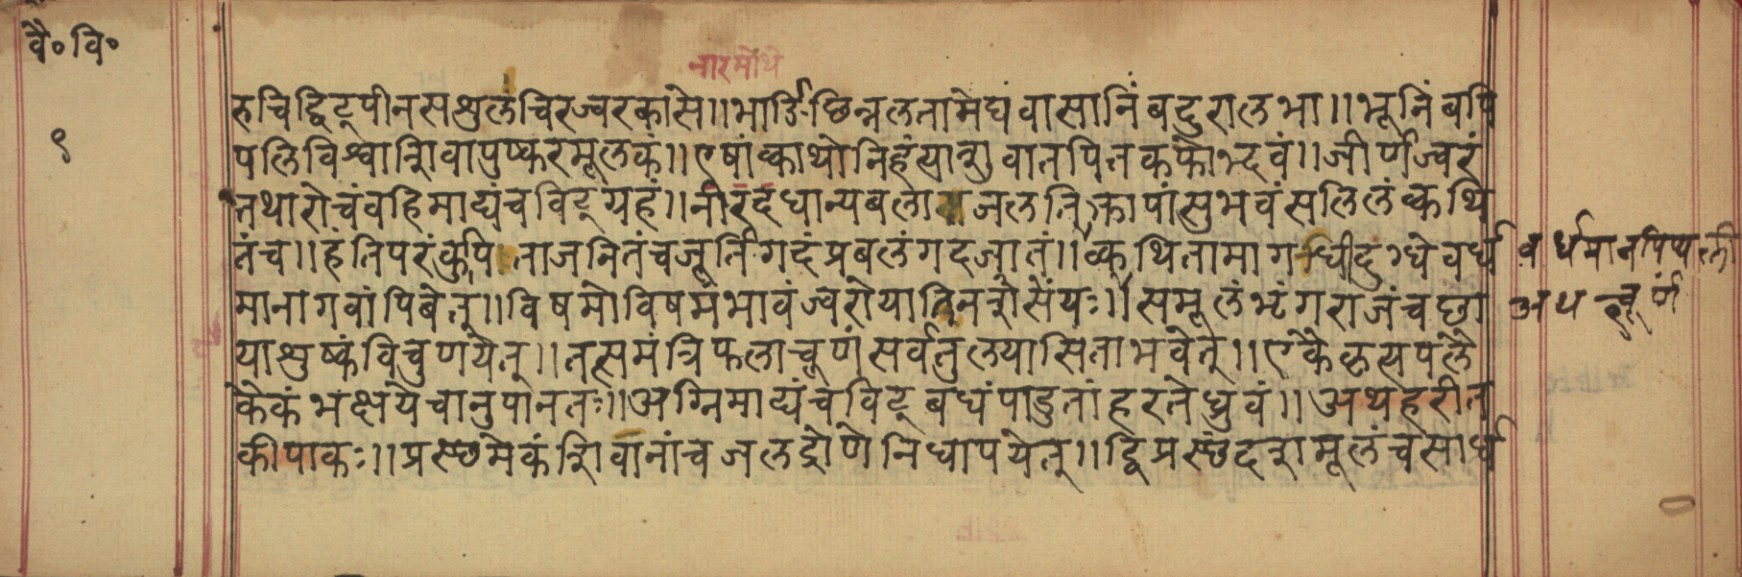 वै॰ वि॰
नारमोथे
रुचिद्विट्पीनसशुलंचिरज्वरकासे॥भार्ङिछिन्नलतामेघंवासानिंबदुरालभा॥भूनिंबपि
९
पलिविश्वाशिवापुष्करमूलकं॥एषांक्वाथोनिहंत्याशुवातपितकफोद्भवं॥जीर्णज्वरं
तथारोचंवहिमाद्यंचविट्ग्रहं॥नीरदधान्यबलाजलतिक्तापांसुभवंसलिलंक्वथि
तंच॥हंतिपरंकुपिताजनितंचजूर्तिगदंप्रबलंगदजातं॥क्वथितामागधिदुग्धेवर्ध
वर्धमानपिप्पली
मानागवांपिबेत्॥विषमोविषमंभावंज्वरोयातिनशेसयः॥समूलंभृंगराजंचछा
अथ चूर्ण
याशुष्कंविचुर्णयेत्॥तत्समंत्रिफलाचूर्णंसर्वतुलयासिताभवेत्॥एकैकृत्यपलै
कैकंभक्षयेचानुपानतः॥अग्निमाद्यंचविट्बधंपाडुतांहरतेध्रुवं॥अथहरीत
कीपाकः॥प्रस्छमेकंशिवानांचजलद्रोणेनिधापयेत्॥द्विप्रस्छंदशमूलंचसार्ध